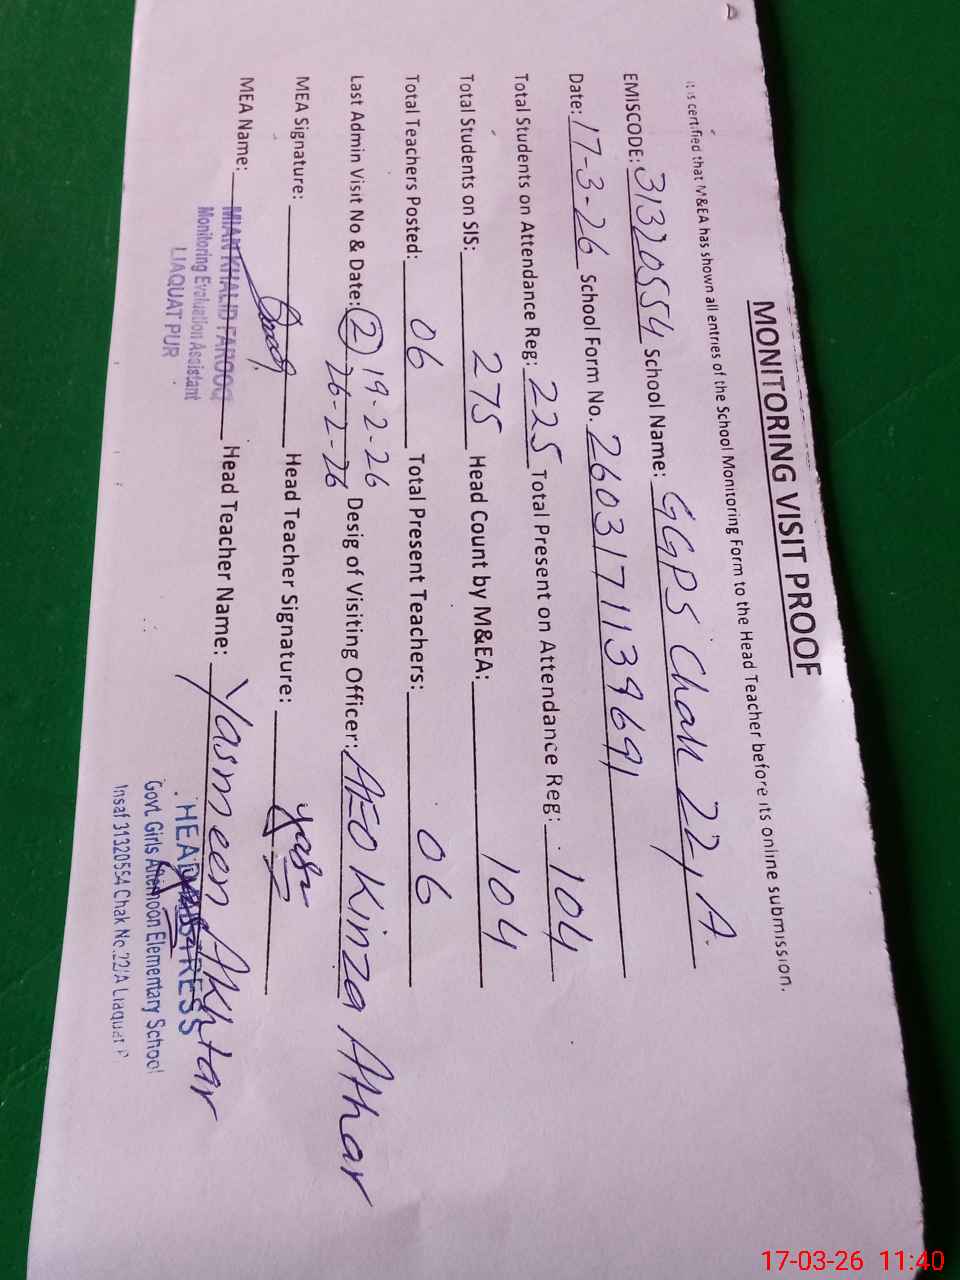 MONITORING VISIT PROOF
It is certified that M&EA has shown all entries of the School Monitoring Form to the Head Teacher before its online submission.
EMISCODE: 31320554 School Name: GGPS Chak 22, A.
Date: 17-3-26 School Form No. 2603171139691
Total Students on Attendance Reg: 225 Total Present on Attendance Reg: 104
Total Students on SIS: 275 Head Count by M&EA: 104
Total Teachers Posted: 06 Total Present Teachers: 06
Last Admin Visit No & Date: 2 19-2-26 Desig of Visiting Officer: AEO Kinza Athar
26-2-26
MEA Signature: Head Teacher Signature:
MEA Name: MIAN KHALID FAROOQ Head Teacher Name: Yasmeen Akhtar
Monitoring Evaluation Assistant
LIAQUAT PUR
HEADMISTRESS
Govt. Girls Afternoon Elementary School
Insaf 31320554 Chak No.22/A Liaquat P
17-03-26 11:40